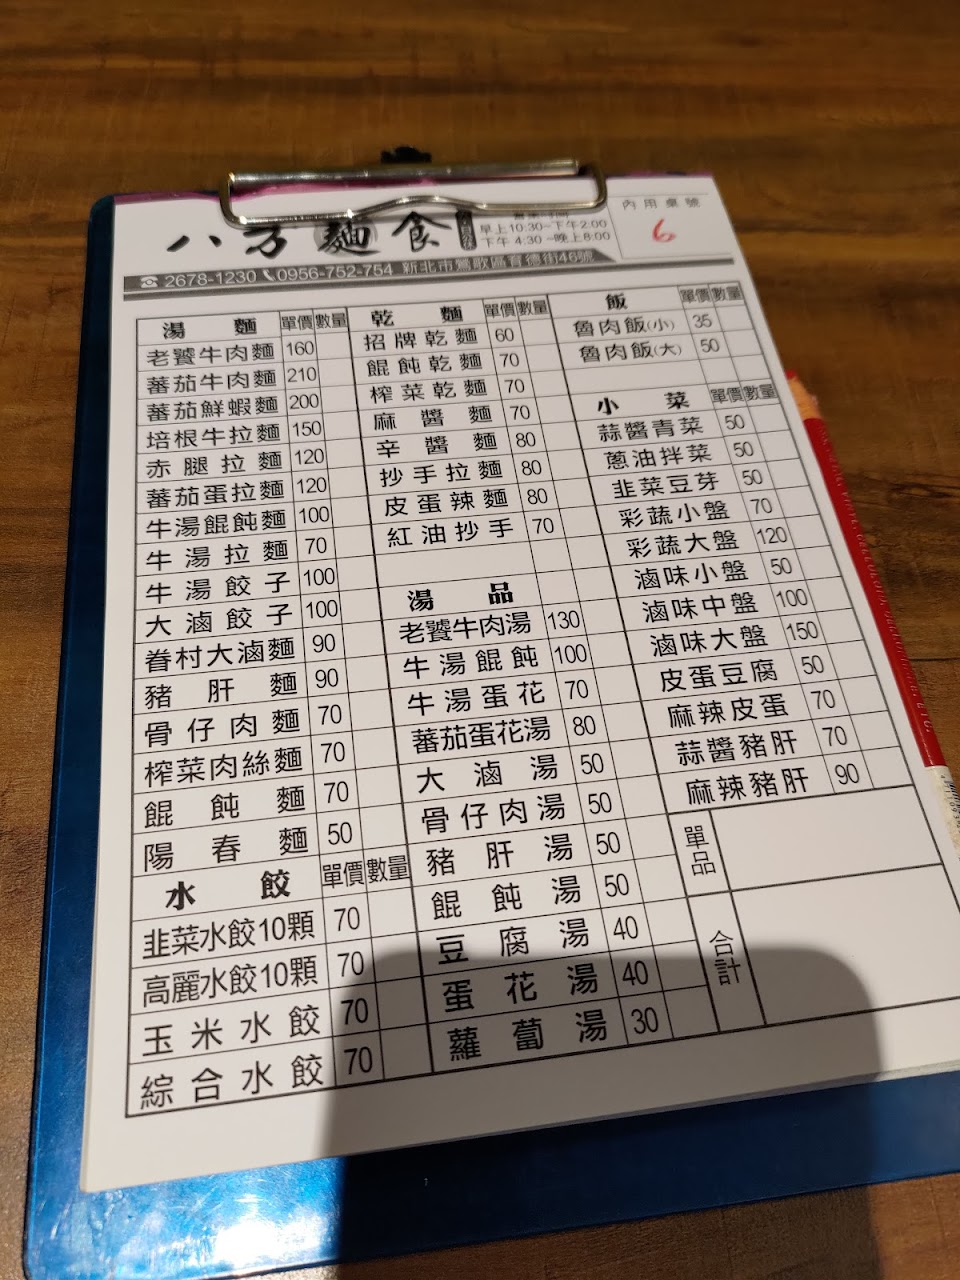 八方麵食
早上10:30~下午2:00
下午 4:30 ~晚上8:00
內用桌號
6
☎ 2678-1230 0956-752-754 新北市鶯歌區育德街46號
湯麵 單價 數量
老饕牛肉麵 160
蕃茄牛肉麵 210
蕃茄鮮蝦麵 200
培根牛拉麵 150
赤腿拉麵 120
蕃茄蛋拉麵 120
牛湯餛飩麵 100
牛湯拉麵 70
牛湯餃子 100
大滷餃子 100
眷村大滷麵 90
豬肝麵 90
骨仔肉麵 70
榨菜肉絲麵 70
餛飩麵 70
陽春麵 50
水餃 單價 數量
韭菜水餃10顆 70
高麗水餃10顆 70
玉米水餃 70
綜合水餃 70
乾麵 單價 數量
招牌乾麵 60
餛飩乾麵 70
榨菜乾麵 70
麻醬麵 70
辛醬麵 80
抄手拉麵 80
皮蛋辣麵 80
紅油抄手 70
湯品
老饕牛肉湯 130
牛湯餛飩 100
牛湯蛋花 70
蕃茄蛋花湯 80
大滷湯 50
骨仔肉湯 50
豬肝湯 50
餛飩湯 50
豆腐湯 40
蛋花湯 40
蘿蔔湯 30
飯 單價 數量
魯肉飯(小) 35
魯肉飯(大) 50
小菜 單價 數量
蒜醬青菜 50
蔥油拌菜 50
韭菜豆芽 50
彩蔬小盤 70
彩蔬大盤 120
滷味小盤 50
滷味中盤 100
滷味大盤 150
皮蛋豆腐 50
麻辣皮蛋 70
蒜醬豬肝 70
麻辣豬肝 90
單品
合計